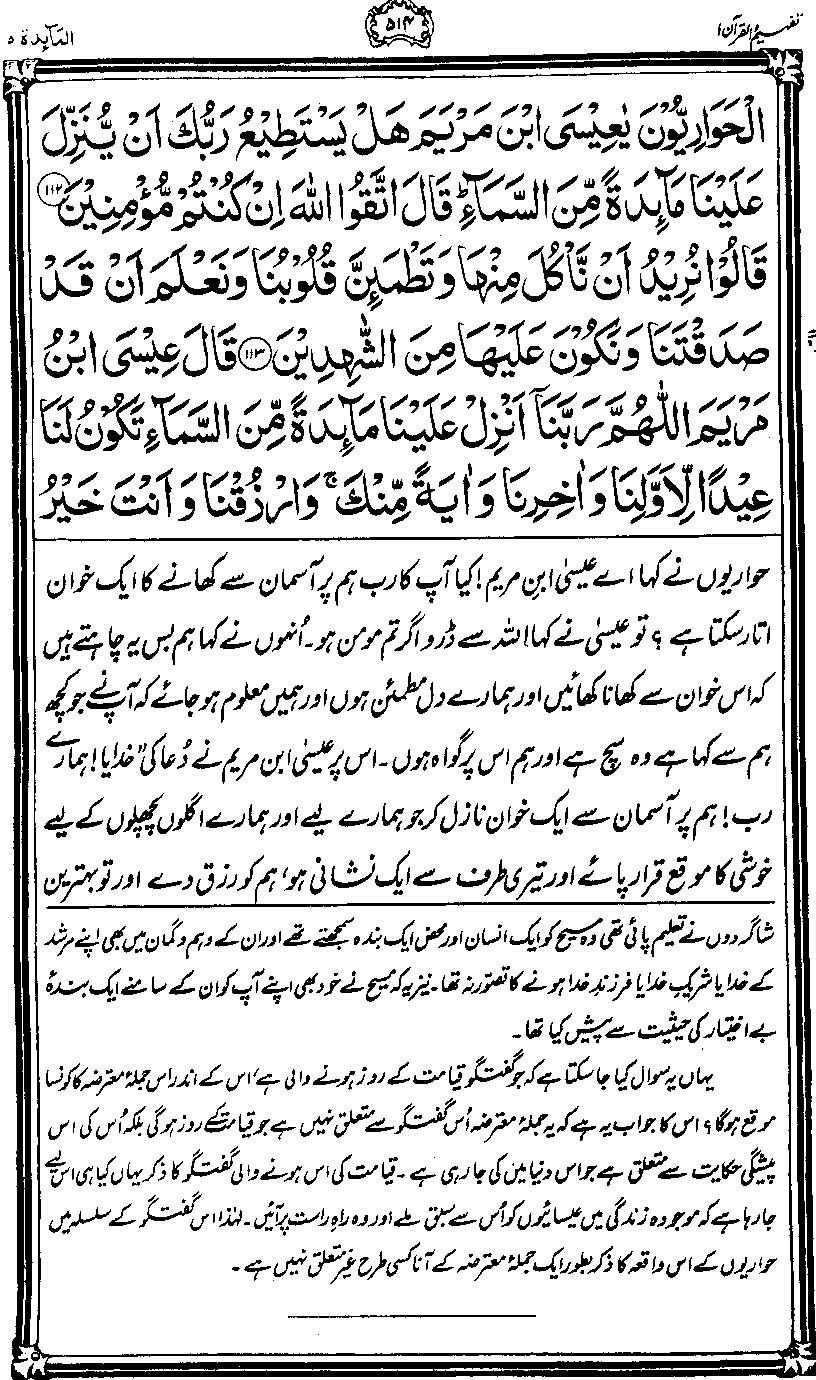 تفہیم القرآن ۱
۵۱۴
المآئدۃ ۵
الْحَوَارِيُّوْنَ يٰعِيْسَى ابْنَ مَرْيَمَ هَلْ يَسْتَطِيْعُ رَبُّكَ اَنْ يُّنَزِّلَ
عَلَيْنَا مَآىِٕدَةً مِّنَ السَّمَآءِ ؕ قَالَ اتَّقُوا اللّٰهَ اِنْ كُنْتُمْ مُّؤْمِنِيْنَ ۝۱۱۲
قَالُوْا نُرِيْدُ اَنْ نَّاْكُلَ مِنْهَا وَ تَطْمَىِٕنَّ قُلُوْبُنَا وَ نَعْلَمَ اَنْ قَدْ
صَدَقْتَنَا وَ نَكُوْنَ عَلَيْهَا مِنَ الشّٰهِدِيْنَ ۝۱۱۳ قَالَ عِيْسَى ابْنُ
مَرْيَمَ اللّٰهُمَّ رَبَّنَآ اَنْزِلْ عَلَيْنَا مَآىِٕدَةً مِّنَ السَّمَآءِ تَكُوْنُ لَنَا
عِيْدًا لِّاَوَّلِنَا وَ اٰخِرِنَا وَ اٰيَةً مِّنْكَ ۚ وَ ارْزُقْنَا وَ اَنْتَ خَيْرُ
حواریوں نے کہا اے عیسیٰ ابنِ مریم! کیا آپ کا رب ہم پر آسمان سے کھانے کا ایک خوان
اتار سکتا ہے؟ تو عیسیٰ نے کہا اللہ سے ڈرو اگر تم مومن ہو۔ اُنہوں نے کہا ہم بس یہ چاہتے ہیں
کہ اس خوان سے کھانا کھائیں اور ہمارے دل مطمئن ہوں اور ہمیں معلوم ہو جائے کہ آپ نے جو کچھ
ہم سے کہا ہے وہ سچ ہے اور ہم اس پر گواہ ہوں۔ اس پر عیسیٰ ابن مریم نے دُعا کی ”خدایا! ہمارے
رب! ہم پر آسمان سے ایک خوان نازل کر جو ہمارے لیے اور ہمارے اگلوں پچھلوں کے لیے
خوشی کا موقع قرار پائے اور تیری طرف سے ایک نشانی ہو، ہم کو رزق دے اور تو بہترین
شاگردوں نے تعلیم پائی تھی وہ مسیح کو ایک انسان اور محض ایک بندہ سمجھتے تھے اور ان کے وہم و گمان میں بھی اپنے مرشد
کے خدا یا شریکِ خدا یا فرزندِ خدا ہونے کا تصور نہ تھا۔ نیز یہ کہ مسیح نے خود بھی اپنے آپ کو ان کے سامنے ایک بندۂ
بے اختیار کی حیثیت سے پیش کیا تھا۔
یہاں یہ سوال کیا جا سکتا ہے کہ جو گفتگو قیامت کے روز ہونے والی ہے، اس کے اندر اس جملۂ معترضہ کا کونسا
موقع ہوگا؟ اس کا جواب یہ ہے کہ یہ جملۂ معترضہ اُس گفتگو سے متعلق نہیں ہے جو قیامت کے روز ہوگی بلکہ اُس کی اس
پیشگی حکایت سے متعلق ہے جو اس دنیا میں کی جا رہی ہے۔ قیامت کی اس ہونے والی گفتگو کا ذکر یہاں کیا ہی اس لیے
جا رہا ہے کہ موجودہ زندگی میں عیسائیوں کو اُس سے سبق ملے اور وہ راہِ راست پر آئیں۔ لہٰذا اس گفتگو کے سلسلہ میں
حواریوں کے اس واقعہ کا ذکر بطور ایک جملۂ معترضہ کے آنا کسی طرح غیر متعلق نہیں ہے۔